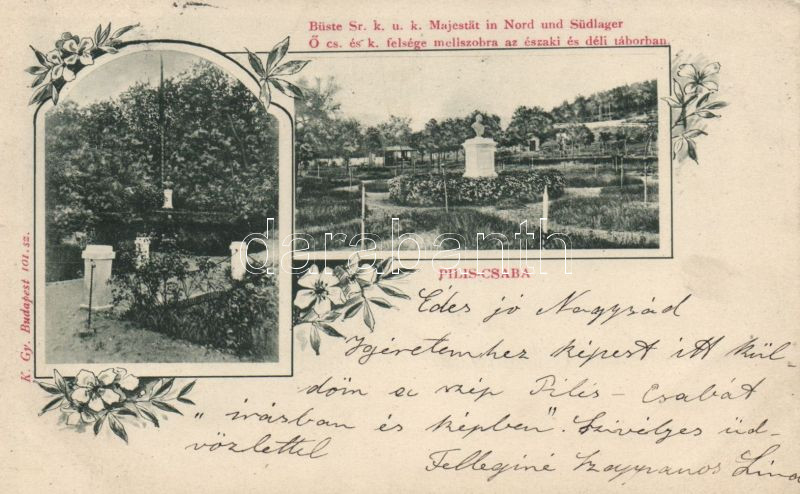 Büste Sr. k. u. k. Majestät in Nord und Südlager
Ő cs. és k. felsége mellszobra az északi és déli táborban.
darabanth.com
PILIS-CSABA
K. Gy. Budapest 101. sz.
Édes jó Nagysád
Igéretemhez képest itt kül-
döm a szép Pilis-Csabát
"írásban és képben". Szivélyes üd-
vözlettel
Felleginé